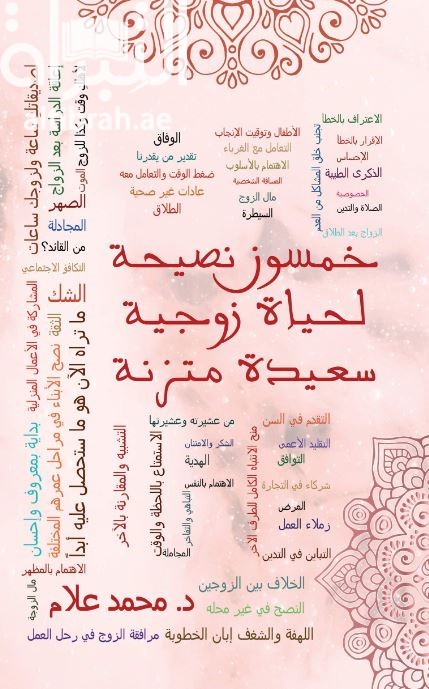 الاعتراف بالخطأ
الإقرار بالخطأ
الإحساس
الذكرى الطيبة
الخصوصية
الصلاة والتدين
الزواج بعد الطلاق
تجنب خلق المشاكل من العدم
الأطفال وتوقيت الإنجاب
التعامل مع الغرباء
الاهتمام بالأسلوب
المسافة الشخصية
مال الزوج
السيطرة
الوفاق
تقدير من يقدرنا
ضغط الوقت والتعامل معه
عادات غير صحية
الطلاق
إعاقة الدراسة بعد الزواج
الموت
الصهر
المجادلة
من القائد؟
التكافؤ الاجتماعي
الشك
الثقة
ما تراه الآن هو ما ستحصل عليه أبداً
نصح الأبناء في مراحل عمرهم المختلفة
المشاركة في الأعمال المنزلية
بداية بمعروف وإحسان
الاهتمام بالمظهر
خمسون نصيحة
لحياة زوجية
سعيدة متزنة
التقدم في السن
التقليد الأعمى
التوافق
شركاء في التجارة
المرض
زملاء العمل
التباين في التدين
منح الانتباه الكامل للطرف الآخر
من عشيرته وعشيرتها
الشكر والامتنان
الهدية
الاهتمام بالنفس
التباهي والتفاخر
المجاملة
الاستمتاع باللحظة والوقت
التشبيه والمقارنة بالآخر
الخلاف بين الزوجين
النصح في غير محله
د. محمد علام
مال الزوجة
اللهفة والشغف إبان الخطوبة
مرافقة الزوج في رحل العمل